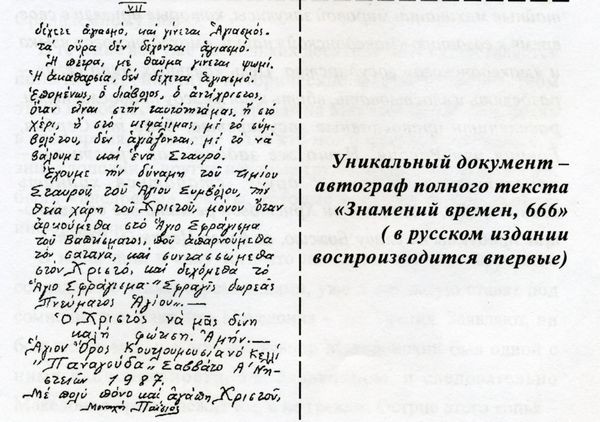 VII
δέχεται ἁγιασμό, καὶ γίνεται Ἁγιασμός.
τὰ οὖρα δὲν δέχονται ἁγιασμό.
Ἡ πέτρα, μὲ θαῦμα γίνεται ψωμί.
Ἡ ἀκαθαρσία, δὲν δέχεται ἁγιασμό.
Ἑπομένως, ὁ διάβολος, ὁ ἀντίχριστος,
ὅταν εἶναι στὴν ταυτότητά μας, ἢ στὸ
χέρι, ἢ στὸ κεφάλι μας, μὲ τὸ σύμ-
βολό του, δὲν ἁγιάζονται, μὲ τὸ νὰ
βάλουμε καὶ ἕνα Σταυρό.
Ἔχουμε τὴν δύναμη τοῦ τιμίου
Σταυροῦ τοῦ Ἁγίου Συμβόλου, τὴν
Θεία χάρη τοῦ Χριστοῦ, μόνον ὅταν
ἀρκούμεθα στὸ Ἅγιο Σφράγισμα
τοῦ Βαπτίσματος, ποὺ ἀπαρνούμεθα
τὸν σατανᾶ, καὶ συντασσόμεθα
στὸν Χριστό, καὶ δεχόμεθα τὸ
Ἅγιο Σφράγισμα "Σφραγὶς δωρεᾶς
Πνεύματος Ἁγίου".—
Ὁ Χριστὸς νὰ μᾶς δίνη
καλὴ φώτιση. Ἀμήν.—
Ἅγιον Ὄρος Κουτλουμουσιανὸ Κελλί
"Παναγούδα" Σάββατο Α΄ Νη-
στειῶν 1987.
Μὲ πολὺ πόνο καὶ ἀγάπη Χριστοῦ,
Μοναχὸς Παΐσιος
Уникальный документ –
автограф полного текста
«Знамений времен, 666»
( в русском издании
воспроизводится впервые)